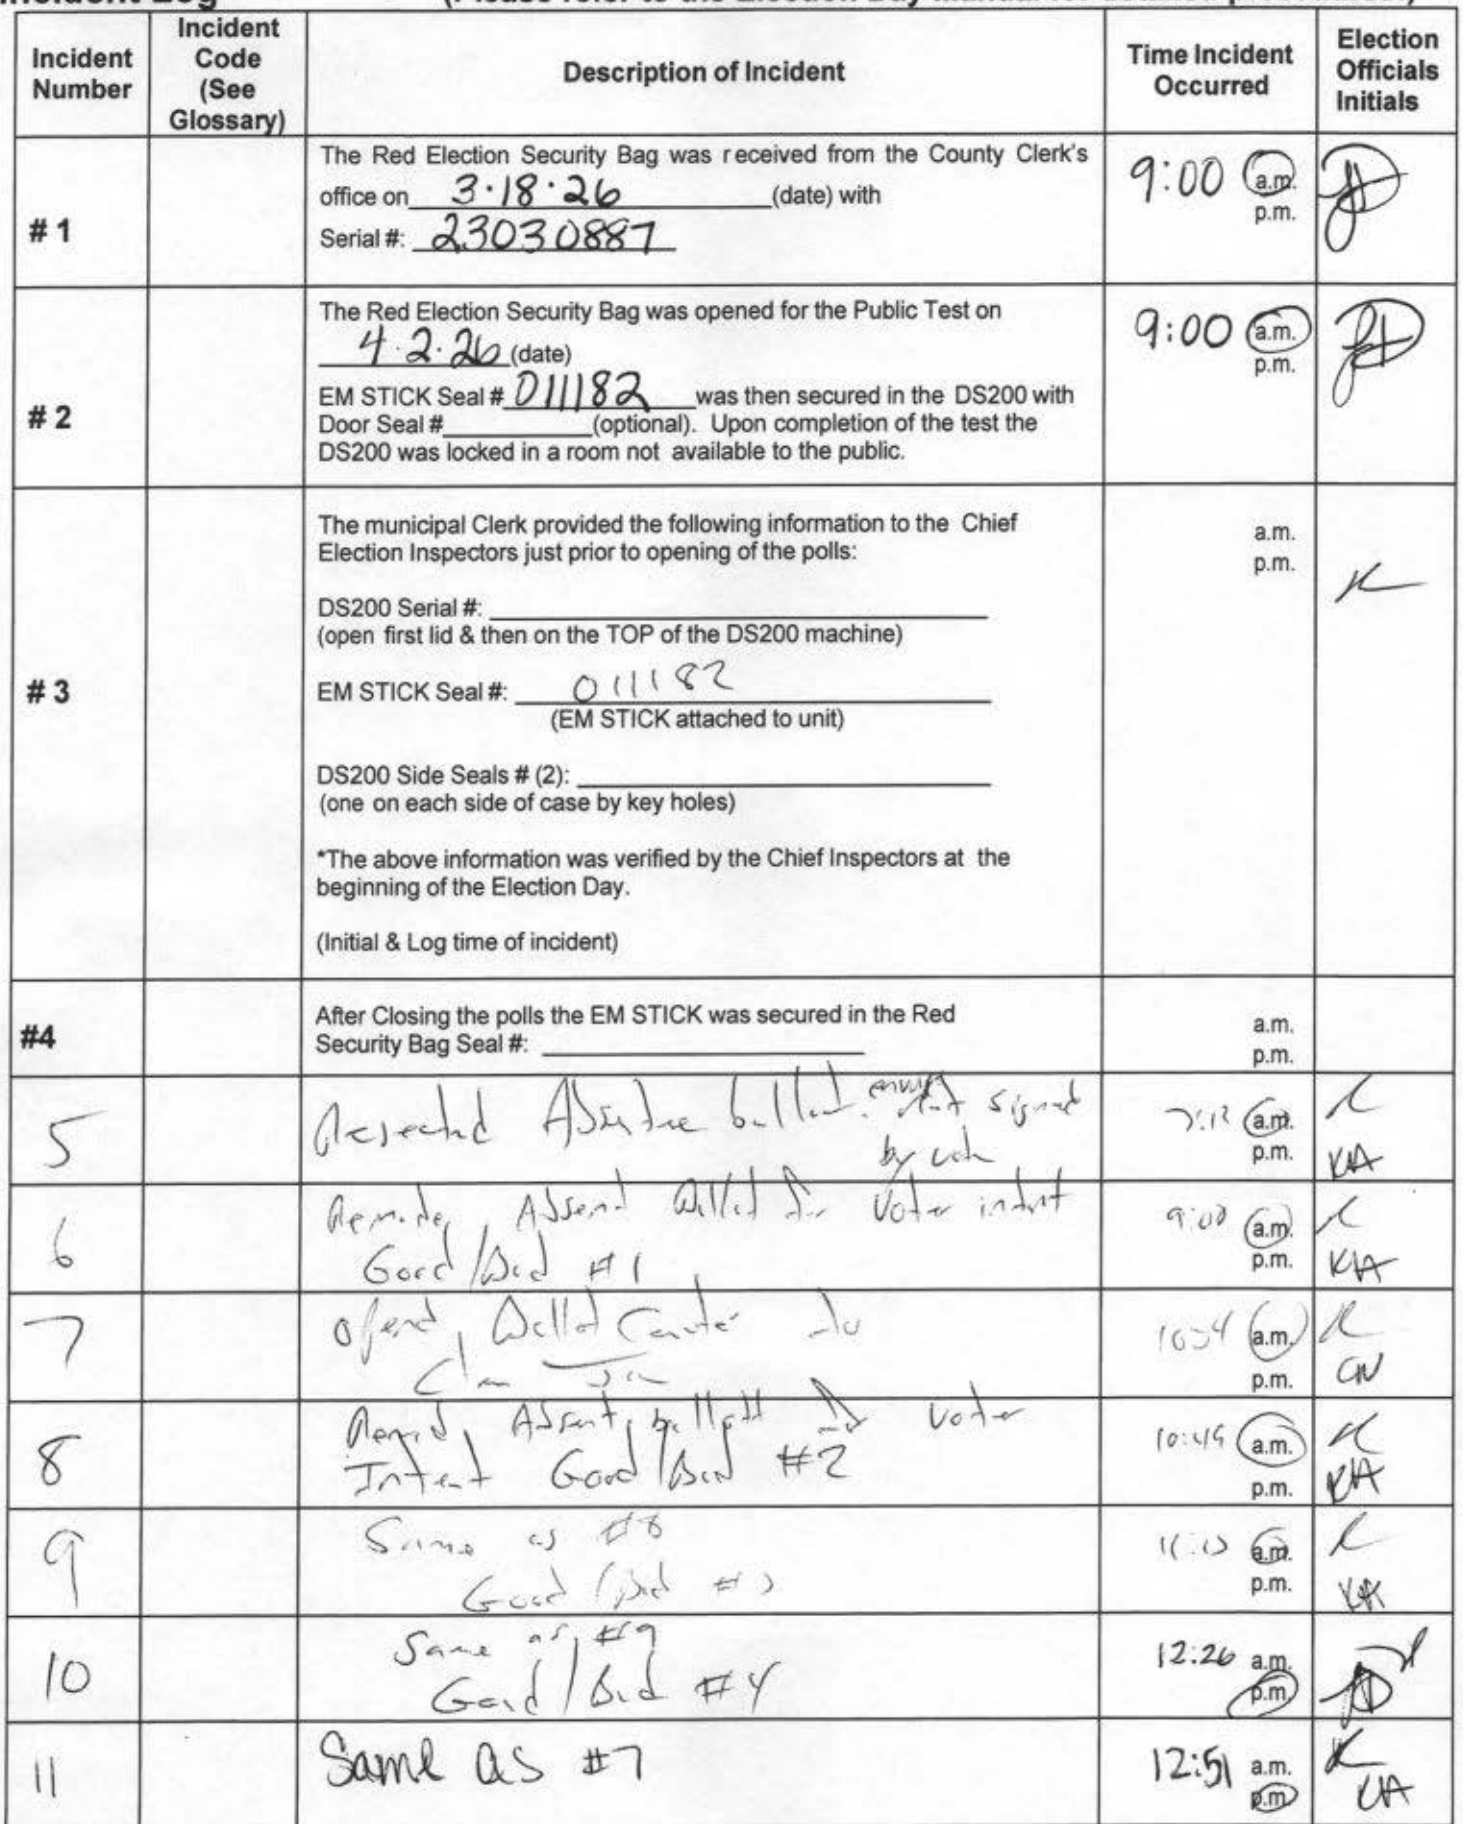 Incident Log (Please refer to the Election Day Manual for detailed procedures.)
Incident Number
Incident Code (See Glossary)
Description of Incident
Time Incident Occurred
Election Officials Initials
# 1
The Red Election Security Bag was received from the County Clerk's
office on 3·18·26 (date) with
Serial #: 23030887
9:00 a.m.
p.m.
# 2
The Red Election Security Bag was opened for the Public Test on
4·2·26 (date)
EM STICK Seal # 011182 was then secured in the DS200 with
Door Seal # (optional). Upon completion of the test the
DS200 was locked in a room not available to the public.
9:00 a.m.
p.m.
# 3
The municipal Clerk provided the following information to the Chief
Election Inspectors just prior to opening of the polls:
DS200 Serial #:
(open first lid & then on the TOP of the DS200 machine)
EM STICK Seal #: 011182
(EM STICK attached to unit)
DS200 Side Seals # (2):
(one on each side of case by key holes)
*The above information was verified by the Chief Inspectors at the
beginning of the Election Day.
(Initial & Log time of incident)
a.m.
p.m.
#4
After Closing the polls the EM STICK was secured in the Red
Security Bag Seal #:
a.m.
p.m.
5
Absentee ballot signed
by
a.m.
p.m.
KA
6
Absent Ballot for Voter intent
Good/Bad #1
9:00 a.m.
p.m.
KA
7
Ballot
a.m.
p.m.
CW
8
Absent ballot for voter
Intent Good/Bad #2
10:49 a.m.
p.m.
KA
9
Same as #8
Good/Bad #3
a.m.
p.m.
KA
10
Same as #9
Good/Bad #4
12:26 a.m.
p.m.
11
Same as #7
12:51 a.m.
p.m.
KA